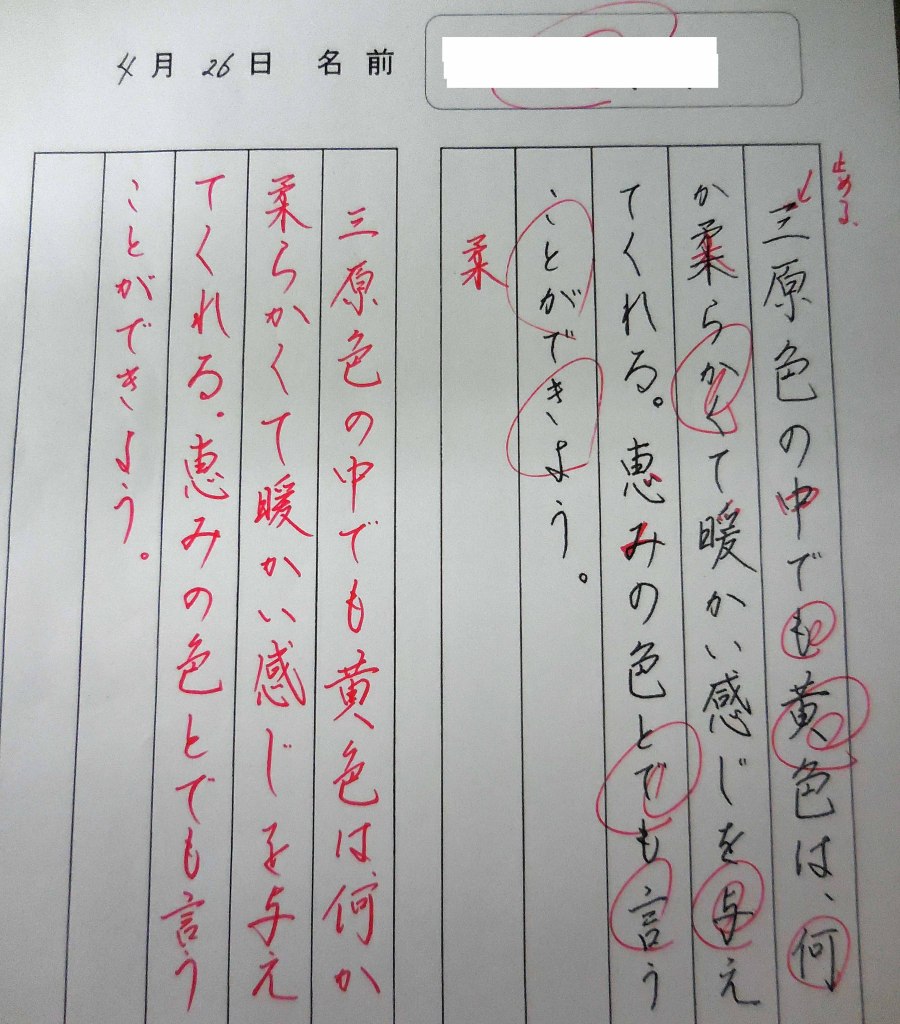 4月26日 名前
止める
三原色の中でも黄色は、何
か柔らかくて暖かい感じを与え
てくれる。恵みの色とでも言う
ことができよう。
柔
三原色の中でも黄色は、何か
柔らかくて暖かい感じを与え
てくれる。恵みの色とでも言う
ことができよう。